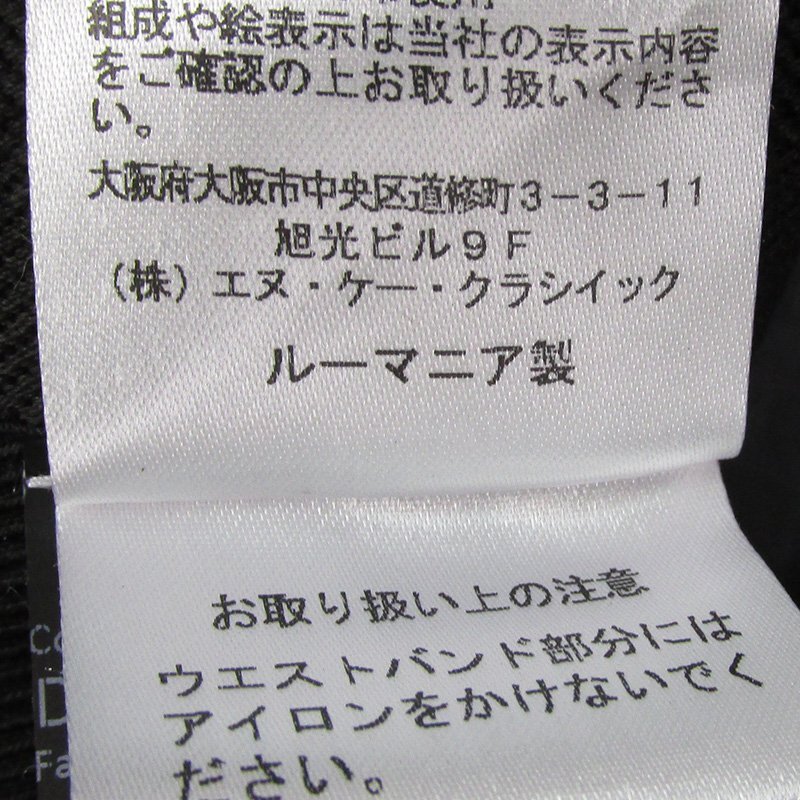 組成や絵表示は当社の表示内容
をご確認の上お取り扱いくださ
い。
大阪府大阪市中央区道修町3-3-11
旭光ビル9F
(株)エヌ・ケー・クラシイック
ルーマニア製
お取り扱い上の注意
ウエストバンド部分には
アイロンをかけないでく
ださい。